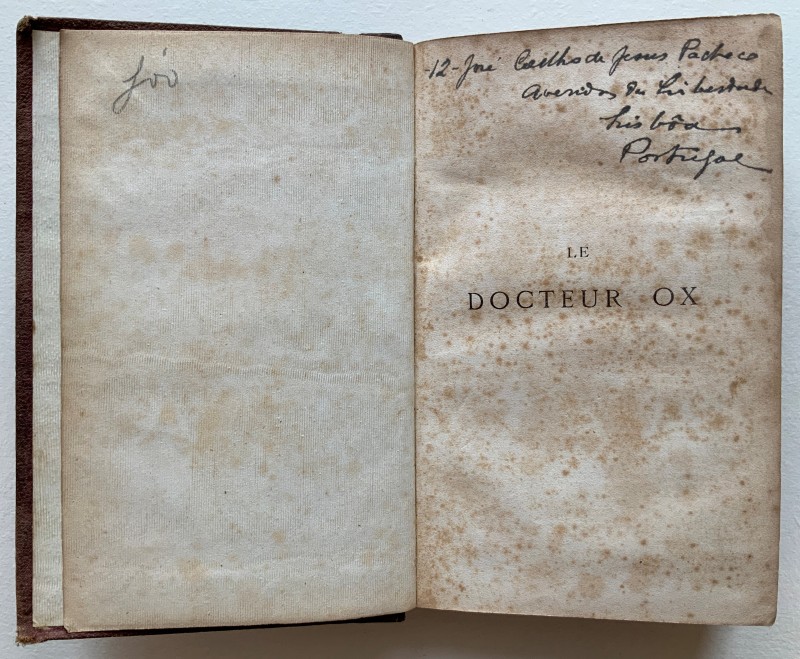 12-José Coelho de Jesus Pacheco
Avenida da Liberdade
Lisbôa
Portugal
LE
DOCTEUR OX